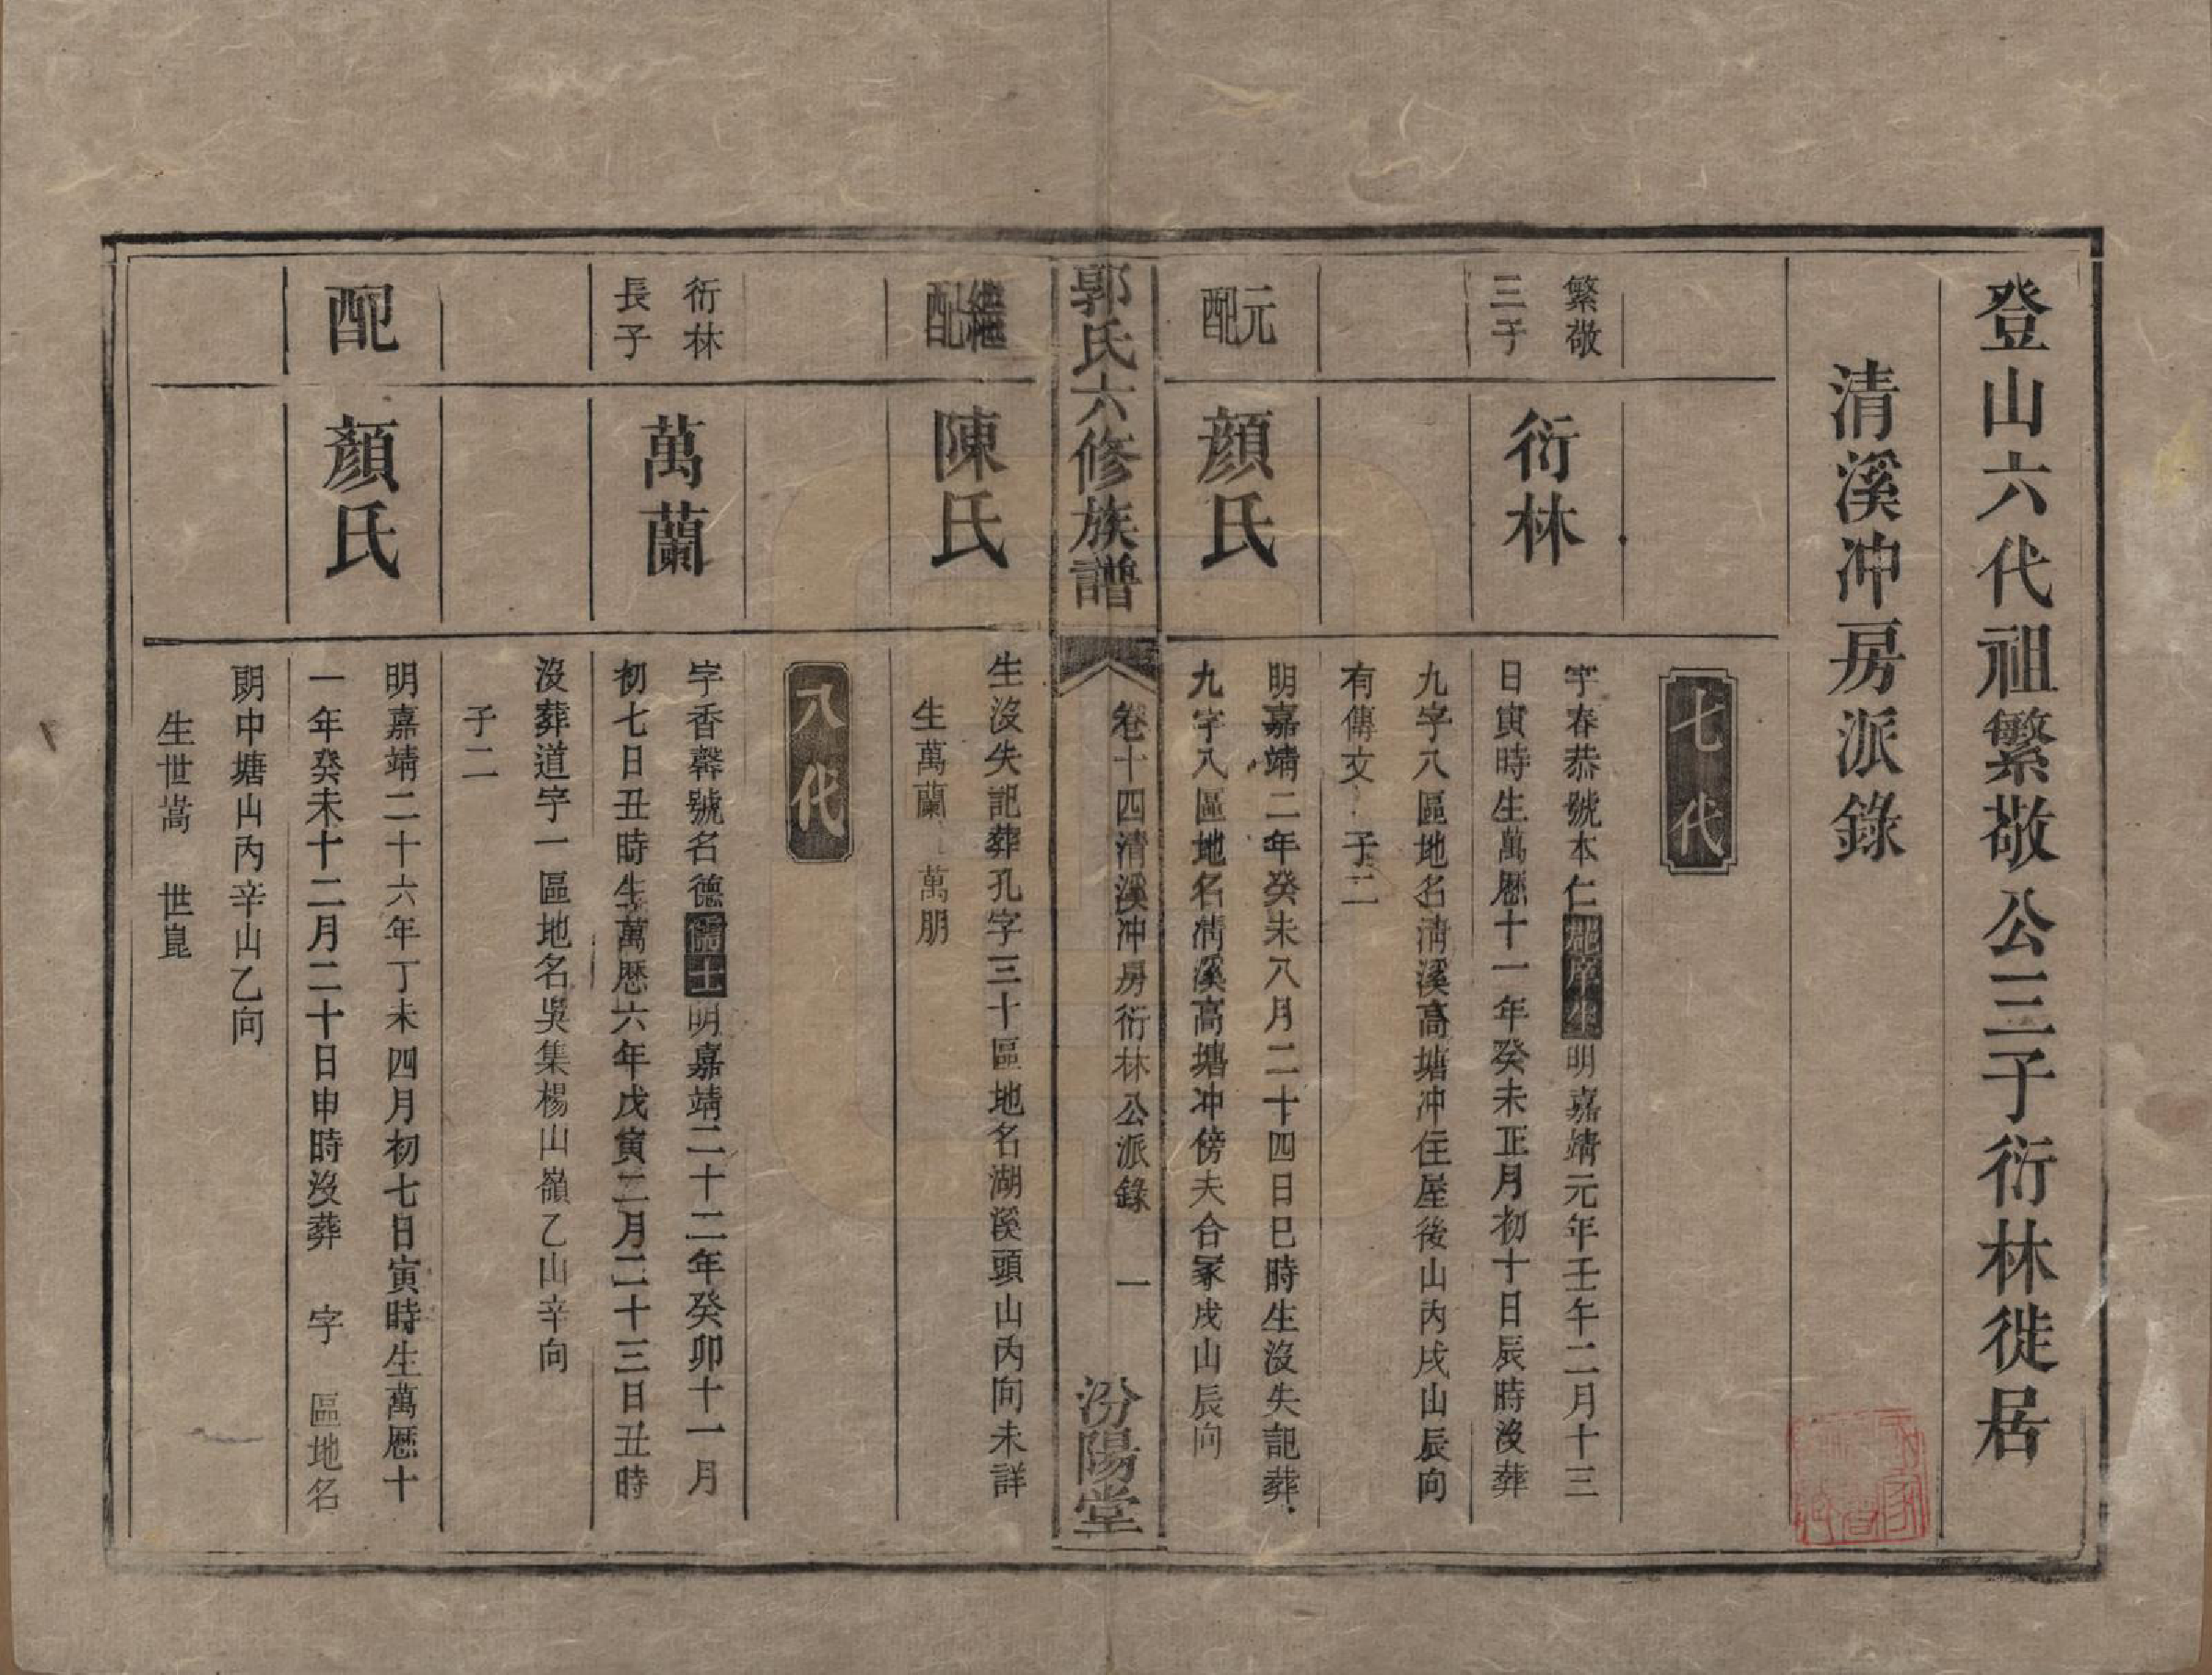 登山六代祖繁敬公三子衍林徙居
清溪冲房派錄
七代
繁敬
三子
衍林
字春恭號本仁郡庠生明嘉靖元年壬午二月十三
日寅時生萬曆十一年癸未正月初十日辰時沒葬
九字八區地名淸溪高塘冲住屋後山內戌山辰向
有傳文 子二
元配
顔氏
明嘉靖二年癸未八月二十四日巳時生沒失記葬
九字八區地名淸溪高塘冲傍夫合冢戌山辰向
郭氏六修族譜
卷十四清溪冲房衍林公派錄 一
汾陽堂
繼配
陳氏
生沒失記葬孔字三十區地名湖溪頭山內向未詳
生萬蘭 萬朋
八代
衍林
長子
萬蘭
字香馨號名德儒士明嘉靖二十二年癸卯十一月
初七日丑時生萬曆六年戊寅二月二十三日丑時
沒葬道字一區地名吳集楊山嶺乙山辛向
子二
配
顏氏
明嘉靖二十六年丁未四月初七日寅時生萬曆十
一年癸未十二月二十日申時沒葬 字 區地名
朗中塘山內辛山乙向
生世嵩 世崑